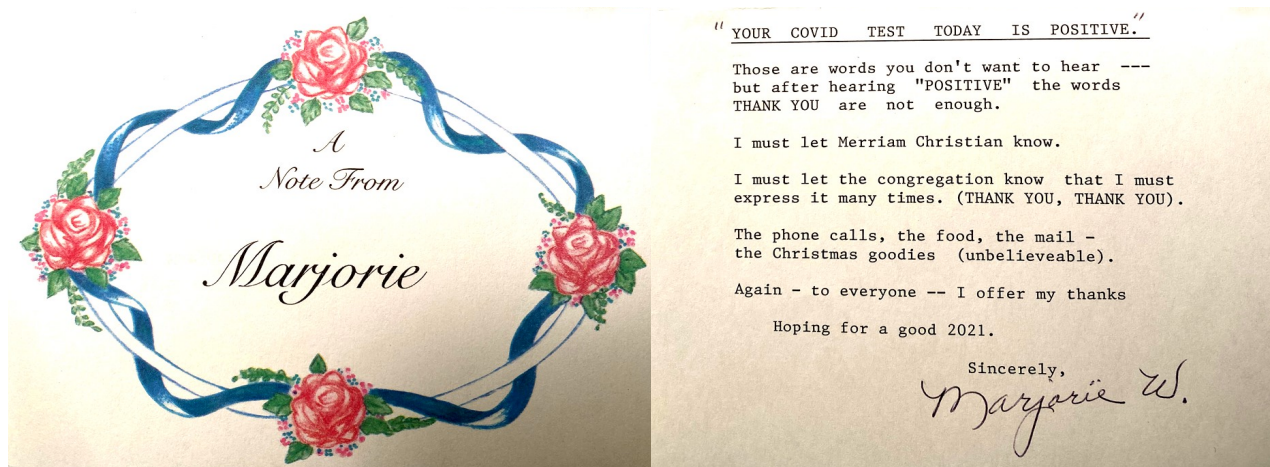 A
Note From
Marjorie
"YOUR COVID TEST TODAY IS POSITIVE."
Those are words you don't want to hear ---
but after hearing "POSITIVE" the words
THANK YOU are not enough.
I must let Merriam Christian know.
I must let the congregation know that I must
express it many times. (THANK YOU, THANK YOU).
The phone calls, the food, the mail -
the Christmas goodies (unbelieveable).
Again - to everyone -- I offer my thanks
Hoping for a good 2021.
Sincerely,
Marjorie W.